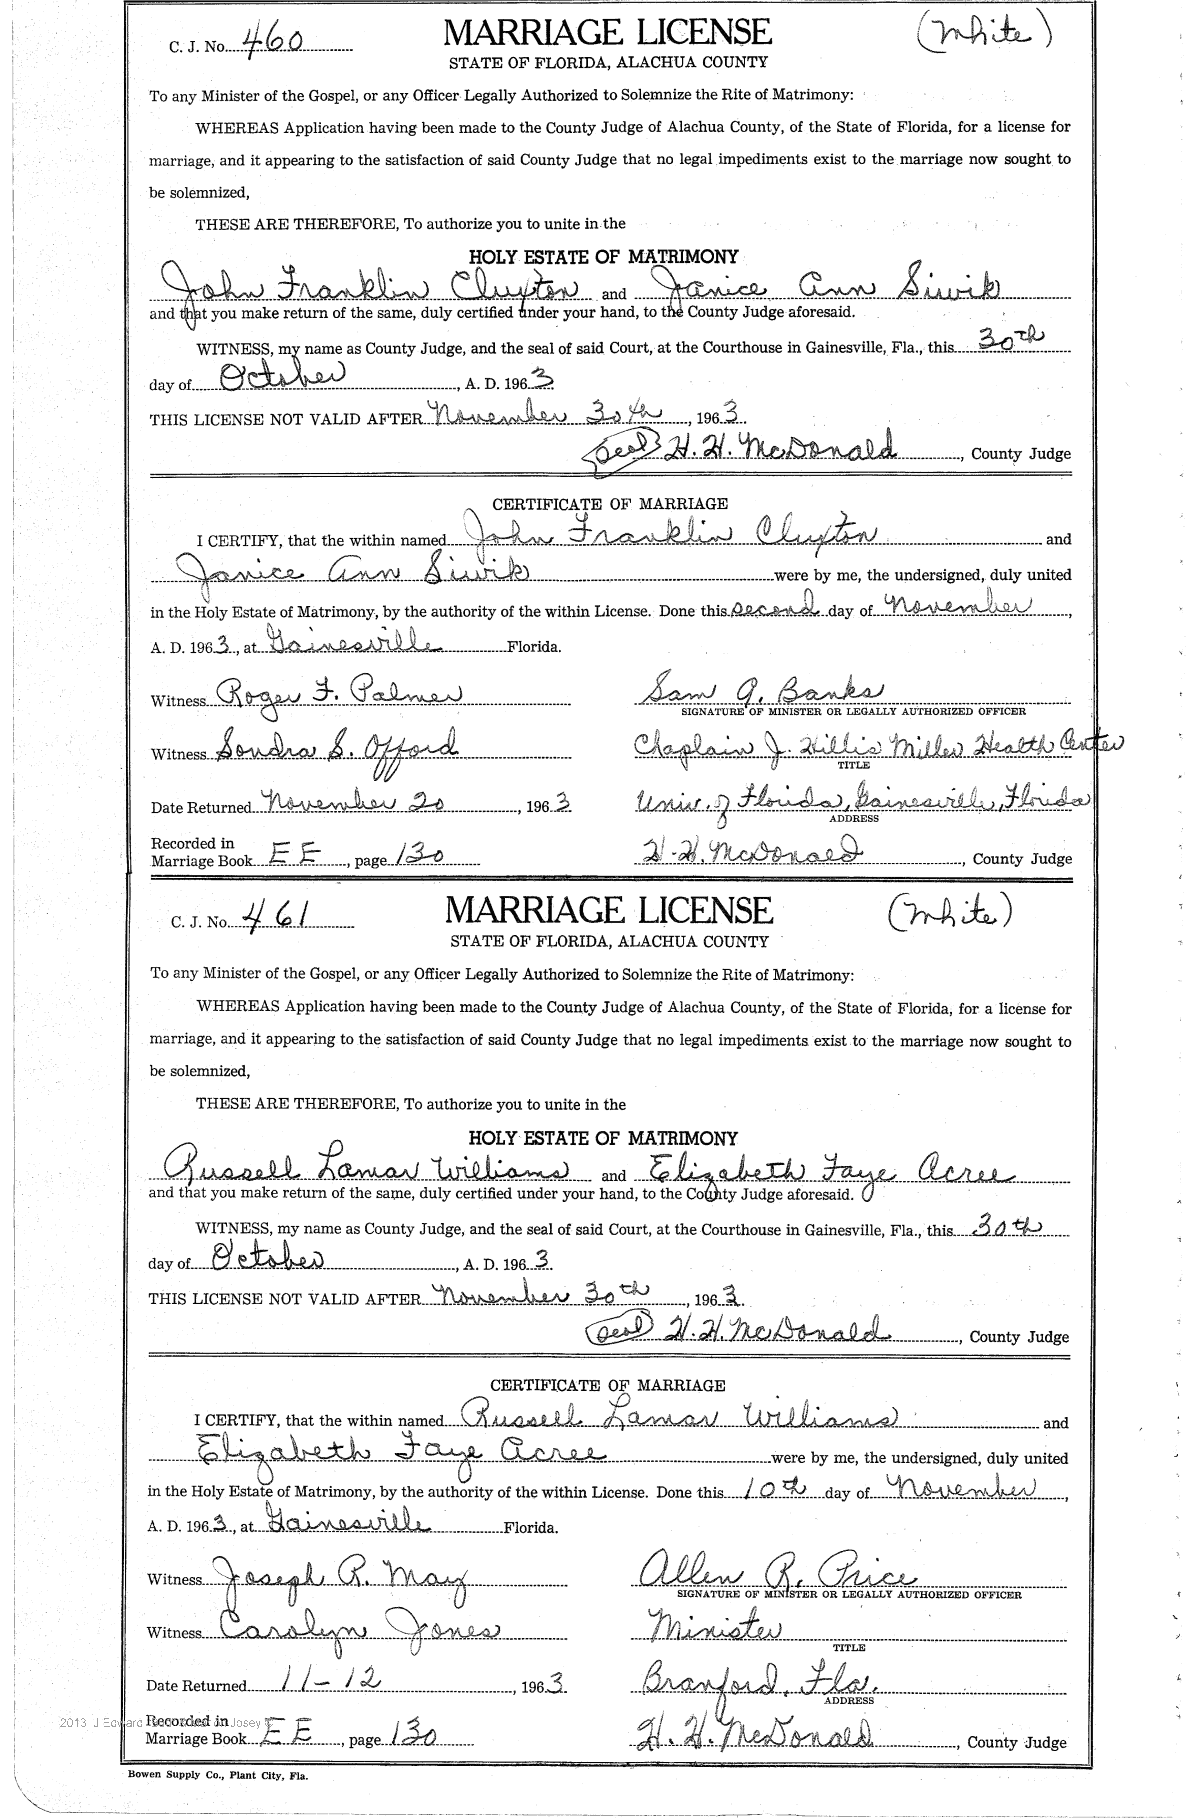 C. J. No. 460 MARRIAGE LICENSE (White)
STATE OF FLORIDA, ALACHUA COUNTY
To any Minister of the Gospel, or any Officer Legally Authorized to Solemnize the Rite of Matrimony:
WHEREAS Application having been made to the County Judge of Alachua County, of the State of Florida, for a license for
marriage, and it appearing to the satisfaction of said County Judge that no legal impediments exist to the marriage now sought to
be solemnized,
THESE ARE THEREFORE, To authorize you to unite in the
HOLY ESTATE OF MATRIMONY
John Franklin Cluxton and Janice Ann Siwik
and that you make return of the same, duly certified under your hand, to the County Judge aforesaid.
WITNESS, my name as County Judge, and the seal of said Court, at the Courthouse in Gainesville, Fla., this 30th
day of October, A. D. 1963
THIS LICENSE NOT VALID AFTER November 30th, 1963.
(Seal) H. H. McDonald, County Judge
CERTIFICATE OF MARRIAGE
I CERTIFY, that the within named John Franklin Cluxton and
Janice Ann Siwik were by me, the undersigned, duly united
in the Holy Estate of Matrimony, by the authority of the within License. Done this second day of November,
A. D. 1963, at Gainesville Florida.
Witness Roger F. Palmer Sam G. Banks
SIGNATURE OF MINISTER OR LEGALLY AUTHORIZED OFFICER
Witness Sondra S. Offord Chaplain J. Hillis Miller Health Center
TITLE
Date Returned November 20, 1963 Univ. of Florida, Gainesville, Florida
ADDRESS
Recorded in
Marriage Book EE, page 130 H. H. McDonald, County Judge
C. J. No. 461 MARRIAGE LICENSE (White)
STATE OF FLORIDA, ALACHUA COUNTY
To any Minister of the Gospel, or any Officer Legally Authorized to Solemnize the Rite of Matrimony:
WHEREAS Application having been made to the County Judge of Alachua County, of the State of Florida, for a license for
marriage, and it appearing to the satisfaction of said County Judge that no legal impediments exist to the marriage now sought to
be solemnized,
THESE ARE THEREFORE, To authorize you to unite in the
HOLY ESTATE OF MATRIMONY
Russell Lamar Williams and Elizabeth Faye Acree
and that you make return of the same, duly certified under your hand, to the County Judge aforesaid.
WITNESS, my name as County Judge, and the seal of said Court, at the Courthouse in Gainesville, Fla., this 30th
day of October, A. D. 1963.
THIS LICENSE NOT VALID AFTER November 30th, 1963.
(Seal) H. H. McDonald, County Judge
CERTIFICATE OF MARRIAGE
I CERTIFY, that the within named Russell Lamar Williams and
Elizabeth Faye Acree were by me, the undersigned, duly united
in the Holy Estate of Matrimony, by the authority of the within License. Done this 10th day of November,
A. D. 1963, at Gainesville Florida.
Witness Joseph R. May Allen R. Price
SIGNATURE OF MINISTER OR LEGALLY AUTHORIZED OFFICER
Witness Carolyn Jones Minister
TITLE
Date Returned 11-12, 1963. Branford, Fla.
ADDRESS
2013 J Edward Josey
Recorded in
Marriage Book EE, page 130 H. H. McDonald, County Judge
Bowen Supply Co., Plant City, Fla.